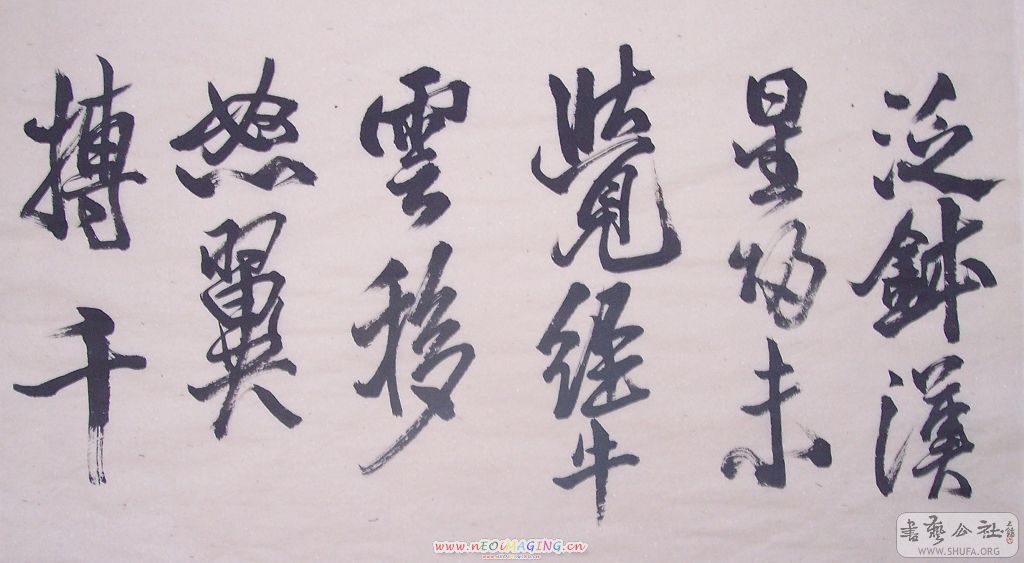 泛鉢漢
星歸未
覺經牛
雲移
怒翼
搏千
www.nEOiMAGING.cn
書藝公社
WWW.SHUFA.ORG